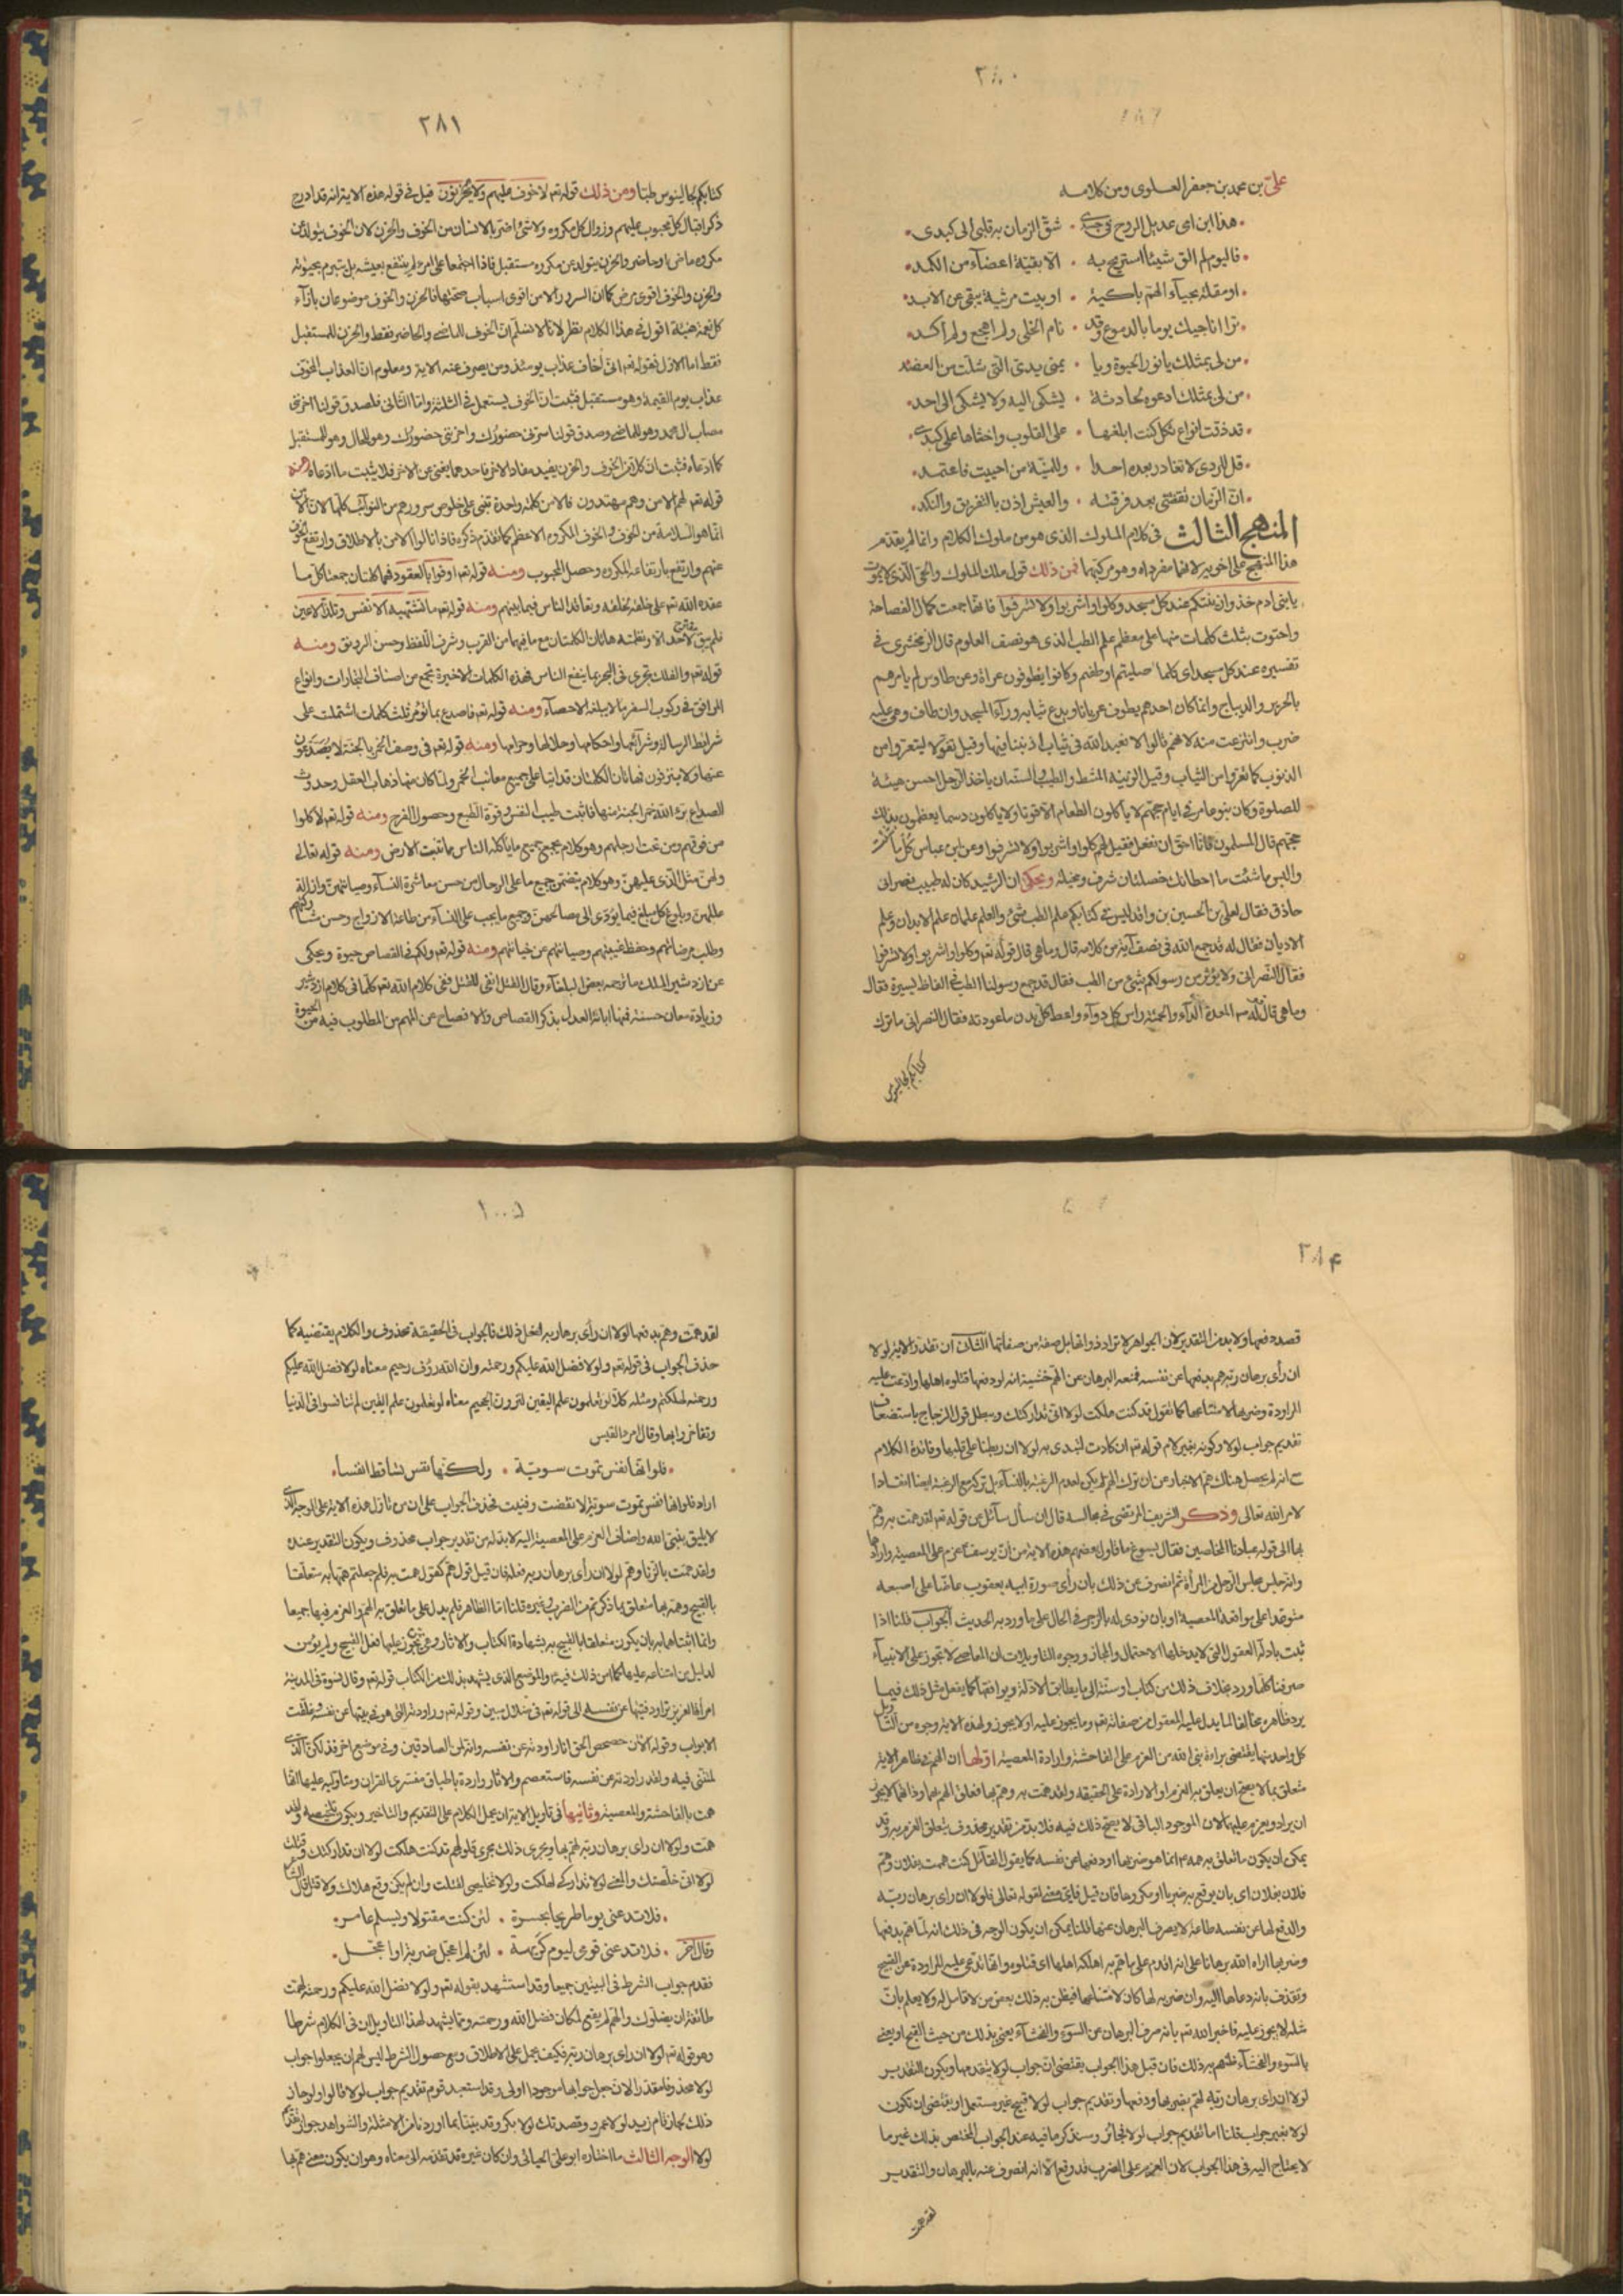 ٢٨٠
علي بن محمد بن جعفر العلوى ومن كلامه
هذا ابن امى عديل الروح فى جسدى • شق الزمان به قلبى الى كبدى
فاليوم لم الق شيئا استريح به • الا بقية اعضاء من الكمد
او مقلة بحياء الهم باكية • او بيت مرثية يبقى عن الابد
ترا اناجيك يوما بالدموع وقد • نام الخلى ولم اهجع ولم اكد
من لى بمثلك يا نور الحيوة ويا • يمنى يدى التى شلت من العضد
من لى بمثلك ادعوه لحادثة • يشكى اليه ولا يشكى الى احد
قد ذقت انواع ثكل كنت ابلغها • على القلوب واخناها على كبدى
قل للردى لا تغادر بعده احدا • وللمنية من احببت فاعتمد
ان الزمان تقضى بعد فرقته • والعيش اذن بالتفريق والنكد
المنهج الثالث فى كلام الملوك الذى هو من ملوك الكلام وانما لم يقدم
هذا المنهج على اخويه لانهما مفرداه وهو مركبهما فمن ذلك قول ملك الملوك والحى الذى لا يموت
يا بنى ادم خذوا زينتكم عند كل مسجد وكلوا واشربوا ولا تسرفوا فانها جمعت كمال الفصاحة
واحتوت بثلث كلمات منها على معظم علم الطب الذى هو نصف العلوم قال الزمخشرى فى
تفسيره عند كل مسجد اى كلما صليتم او طفتم وكانوا يطوفون عراة وعن طاوس لم يامرهم
بالحرير والديباج وانما كان احدهم يطوف عريانا ويدع ثيابه وراء المسجد وان طاف وهى عليه
ضرب وانتزعت منه لانهم قالوا لا نعبد الله فى ثياب اذنبنا فيها وقيل تفؤلا ليتعروا من
الذنوب كما تعروا من الثياب وقيل الزينة المشط والطيب والسنة ان ياخذ الرجل احسن هيئة
للصلوة وكان بنو عامر فى ايام حجهم لا يأكلون الطعام الا قوتا ولا ياكلون دسما يعظمون بذلك
حجهم قال المسلمون فانا احق ان نفعل فقيل لهم كلوا واشربوا ولا تسرفوا وعن ابن عباس كل ما شئت
والبس ما شئت ما اخطاتك خصلتان سرف ومخيلة ويحكى ان الرشيد كان له طبيب نصرانى
حاذق فقال لعلى بن الحسين بن واقد ليس فى كتابكم من علم الطب شئ والعلم علمان علم الابدان وعلم
الاديان فقال له قد جمع الله فى نصف آية من كلامه قال وما هى قال قوله تعم وكلوا واشربوا ولا تسرفوا
فقال النصرانى ولا يؤثر من رسولكم شئ من الطب فقال قد جمع رسولنا الطب فى الفاظ يسيرة فقال
وما هى قال قوله المعدة بيت الداء والحمية راس كل دواء واعط كل بدن ما عودته فقال النصرانى ما ترك
كتابكم لجالينوس
٢٨١
كتابكم لجالينوس طبا ومن ذلك قوله تعم لا خوف عليهم ولا يحزنون قيل فى قوله هذه الاية انه قد ادرج
ذكر اقبال كل محبوب عليهم وزوال كل مكروه ولا شئ اضر بالانسان من الخوف والحزن لان الخوف يتولد من
مكروه ماض او حاضر والحزن يتولد من مكروه مستقبل فاذا اجتمعا على امرء لم ينتفع بعيشه بل يتبرم بحيوته
والحزن والخوف اقوى مرض كما ان السرور والامن اقوى اسباب صحتها فالحزن والخوف موضوعان بازاء
كل نعمة هنيئة اقول فى هذا الكلام نظر لانا لا نسلم ان الخوف للماضى والحاضر فقط والحزن للمستقبل
فقط اما الاول فقوله تعم انى اخاف عذاب يومئذ ومن يصرف عنه الاية ومعلوم ان العذاب المخوف
عذاب يوم القيمة وهو مستقبل فثبت ان الخوف يستعمل فى الثلثة واما الثانى فلصدق قولنا احزننى
مصاب ال محمد وهو للماضى وصدق قولنا سرنى حضورك واحزننى حضورك وهو للحال وهو للمستقبل
كما ادعاه فثبت ان كلا من الخوف والحزن يفيد مفاد الاخر فاحدهما يغنى عن الاخر فلا يثبت ما ادعاه ومنه
قوله تعم لهم الامن وهم مهتدون فالامن كلمة واحدة تنبى على خلوص سرورهم من النوائب كلها لان الامن
انما هو السلامة من الخوف والخوف المكروه الاعظم كما تقدم ذكره فاذا نالوا الامن بالاطلاق وارتفع الخوف
عنهم وارتفع بارتفاعه المكروه وحصل المحبوب ومنه قوله تعم اوفوا بالعقود فهما كلمتان جمعتا كل ما
عقده الله تعم على خلقه لخلقه وتعاقد الناس فيما بينهم ومنه قوله تعم ما تشتهيه الانفس وتلذ الاعين
فلم يبق مقترح لاحد الا وتضمنته هاتان الكلمتان مع ما فيهما من القرب وشرف اللفظ وحسن الرونق ومنه
قوله تعم والفلك تجرى فى البحر بما ينفع الناس فهذه الكلمات الاخيرة تجمع من اصناف التجارات وانواع
المرافق فى ركوب السفر ما لا يبلغه الاحصاء ومنه قوله تعم فاصدع بما تؤمر ثلث كلمات اشتملت على
شرائط الرسالة وشرائعها واحكامها وحلالها وحرامها ومنه قوله تعم فى وصف الخمر بالجنة لا يصدعون
عنها ولا ينزفون فهاتان الكلمتان قد اتيا على جميع معائب الخمر ولما كان منها ذهاب العقل وحدوث
الصداع برء الله خمر الجنة منها فاثبت طيب النفس وقوة الطبع وحصول الفرح ومنه قوله تعم لاكلوا
من فوقهم ومن تحت ارجلهم وهو كلام يجمع جميع ما ياكله الناس مما تنبت الارض ومنه قوله تعالى
ولهن مثل الذى عليهن وهو كلام يتضمن جميع ما على الرجال من حسن معاشرة النساء وصيانتهن وازالة
عللهن وبلوغ كل مبلغ فيما يؤدى الى مصالحهن وجميع ما يجب على النساء من طاعة الازواج وحسن مشاركتهم
وطلب مرضاتهم وحفظ غيبتهم وصيانتهم عن خيانتهم ومنه قوله تعم ولكم فى القصاص حيوة ويحكى
عن اردشير الملك ما ترجمه بعض البلغاء وقال القتل انفى للقتل ففى كلام الله تعم كلما فى كلام اردشير
وزيادة معان حسنة فمنها ابانة العدل بذكر القصاص والافصاح عن المهم من المطلوب فيه من الحيوة
٢٨۴
قصد دفعها ولا بد من التقدير لان الجواهر لا تراد ذواتها بل صفة من صفاتها الثانى ان تقدير الاية لولا
ان رأى برهان ربه لهم بدفعها عن نفسه فمنعه البرهان عن الهم خشية انه لو دفعها قتلوه اهلها وادعت عليه
المراودة وضربها لامتناعها كما تقول قد كنت هلكت لولا انى تداركتك ويبطل قول الزجاج باستضعاف
تقديم جواب لولا وكونه بغير لام قوله تعم ان كادت لتبدى به لولا ان ربطنا على قلبها وفائدة الكلام
مع انه لم يحصل هناك هم الاخبار عن ان ترك الهم لم يكن لعدم الرغبة بالنساء بل تركه مع الرغبة ايضا انقيادا
لامر الله تعالى وذكر الشريف المرتضى فى مجالسه قال ان سأل سائل عن قوله تعم لقد همت به وهم
بها الى قوله عبادنا المخلصين فقال يسوغ ما تاول بعضهم هذه الاية من ان يوسف ع عزم على المعصية وارادها
وانه جلس مجلس الرجل من المرأة ثم انصرف عن ذلك بان رأى صورة ابيه يعقوب عاضا على اصبعه
متوعدا على مواقعة المعصية او بان نودى له بالزجر فى الحال على ما ورد به الحديث الجواب قلنا اذا
ثبت بادلة العقول التى لا يدخلها الاحتمال والمجاز ووجوه التاويلات ان المعاصى لا تجوز على الانبياء
صرفنا كلما ورد بخلاف ذلك من كتاب او سنة الى ما يطابق الادلة ويوافقها كما يفعل مثل ذلك فيما
يرد ظاهره مخالفا لما يدل عليه العقول من صفاته تعم وما يجوز عليه او لا يجوز ولهذه الاية وجوه من التأويل
كل واحد منها يقتضى براءة نبى الله من العزم على الفاحشة وارادة المعصية اولها ان الهم فى ظاهر الاية
متعلق بما لا يصح ان يعلق به العزم او الارادة على الحقيقة ولقد همت به وهم بها فعلق الهم بهما وذاتهما لا يجوز
ان يراد ويعزم عليهما لان الموجود الباقى لا يصح ذلك فيه فلا بد من تقدير محذوف يتعلق العزم به وقد
يمكن ان يكون ما تعلق به همه ع انما هو ضربها او دفعها عن نفسه كما يقول القائل كنت هممت بفلان وهم
فلان بفلان اى بان يوقع به ضربا او مكروها فان قيل فاى معنى لقوله تعالى فلولا ان راى برهان ربه
والدفع لها عن نفسه طاعة لا يصرف البرهان عنها قلنا يمكن ان يكون الوجه فى ذلك انه لما هم بدفعها
وضربها اراه الله برهانا على انه ان اقدم على ما هم به اهلكه اهلها اى قتلوه وانها تدعى عليه المراودة عن القبيح
وتقذفه بانه دعاها اليه وان ضربه لها كان لامتناعها فيظن به ذلك بعض من لا تامل له ولا يعلم بان
مثله لا يجوز عليه فاخبر الله تعم بانه صرف البرهان عن السوء والفحشاء يعنى بذلك من حيث القبيح او يعنى
بالسوء والفحشاء ظنهم به ذلك فان قيل هذا الجواب يقتضى ان جواب لولا يتقدمها ويكون التقدير
لولا ان راى برهان ربه لهم بضربها ودفعها وتقديم جواب لولا قبيح غير مستعمل او يقتضى ان تكون
لولا بغير جواب قلنا اما تقديم جواب لولا فجائز وسنذكر ما فيه عند الجواب المختص بذلك غير ما
لا يحتاج اليه فى هذا الجواب لان العزم على الضرب قد وقع الا انه انصرف عنه بالبرهان والتقدير
لقد همت
لقد همت وهم بدفعها لولا ان رأى برهان ربه لفعل ذلك فالجواب فى الحقيقة محذوف والكلام يقتضيه كما
حذف الجواب فى قوله تعم ولولا فضل الله عليكم ورحمته وان الله رؤف رحيم معناه لولا فضل الله عليكم
ورحمته لهلكتم ومثله كلا لو تعلمون علم اليقين لترون الجحيم معناه لو تعلمون علم اليقين لم تنافسوا فى الدنيا
وتفاخروا بها وقال امرء القيس
فلو انها نفس تموت سوية • ولكنها نفس تساقط انفسا
اراد فلو انها نفس تموت سوية لانقضت وفنيت فحذف الجواب على ان من تاول هذه الاية على الوجه الذى
لا يليق بنبى الله واضاف العزم على المعصية اليه لا بد له من تقدير جواب محذوف ويكون التقدير عنده
ولقد همت بالزنا وهم لولا ان رأى برهان ربه فعله فان قيل قوله هم كقوله همت به فلم جعلتم همها به متعلقا
بالقبيح وهمه بها متعلق بما ذكرتم من الضرب وغيره قلنا اما الظاهر فلم يدل على ما تعلق به الهم والعزم فيهما جميعا
وانما اثبتنا همها به بان يكون متعلقا بالقبيح به بشهادة الكتاب والاثار وهى تجوز عليها فعل القبيح ولم يؤمن
لدليل من امتناعه عليها كما امن ذلك فيه ع والموضع الذى يشهد بذلك من الكتاب قوله تعم وقال نسوة فى المدينة
امرأة العزيز تراود فتيها عن نفسه الى قوله تعم فى ضلال مبين وقوله تعم وراودته التى هو فى بيتها عن نفسه وغلقت
الابواب وقوله الان حصحص الحق انا راودته عن نفسه وانه لمن الصادقين وفى موضع اخر فذلكن الذى
لمتننى فيه ولقد راودته عن نفسه فاستعصم والاثار واردة باطباق مفسرى القران ومتاوليه عليها انها
همت بالفاحشة والمعصية وثانيها فى تاويل الاية ان يحمل الكلام على التقديم والتاخير ويكون تلخيصه ولقد
همت ولولا ان راى برهان ربه لهم بها ويجرى ذلك مجرى قولهم قد كنت هلكت لولا ان تداركتك وقتلت
لولا انى خلصتك والمعنى لولا تداركى لهلكت ولولا تخليصى لقتلت وان لم يكن وقع هلاك ولا قتل قال الشاعر
فلا تدعنى يوما طريحا بحسرة • لئن كنت مقتولا ويسلم عامر
وقال اخر • فلا تدعنى قومى ليوم كريهة • لئن لم اعجل ضربة او اعجل
فقدم جواب الشرط فى البيتين جميعا وقد استشهد بقوله تعم ولولا فضل الله عليكم ورحمته لهمت
طائفة ان يضلوك والهم لم يقع لمكان فضل الله ورحمته ومما يشهد لهذا التاويل ان فى الكلام شرطا
وهو قوله تعم لولا ان راى برهان ربه فكيف يحمل على الاطلاق ومع حصول الشرط ليس لهم ان يجعلوا جواب
لولا محذوفا مقدرا لان جعل جوابها موجودا اولى وقد استبعد قوم تقديم جواب لولا قالوا ولو جاز
ذلك لجاز قام زيد لولا عمرو وقصدتك لولا بكر وقد بينا بما اوردنا من الامثلة والشواهد جواز تقدم
لولا الوجه الثالث ما اختاره ابو على الجبائى وان كان غيره قد تقدمه الى معناه وهو ان يكون معنى هم بها